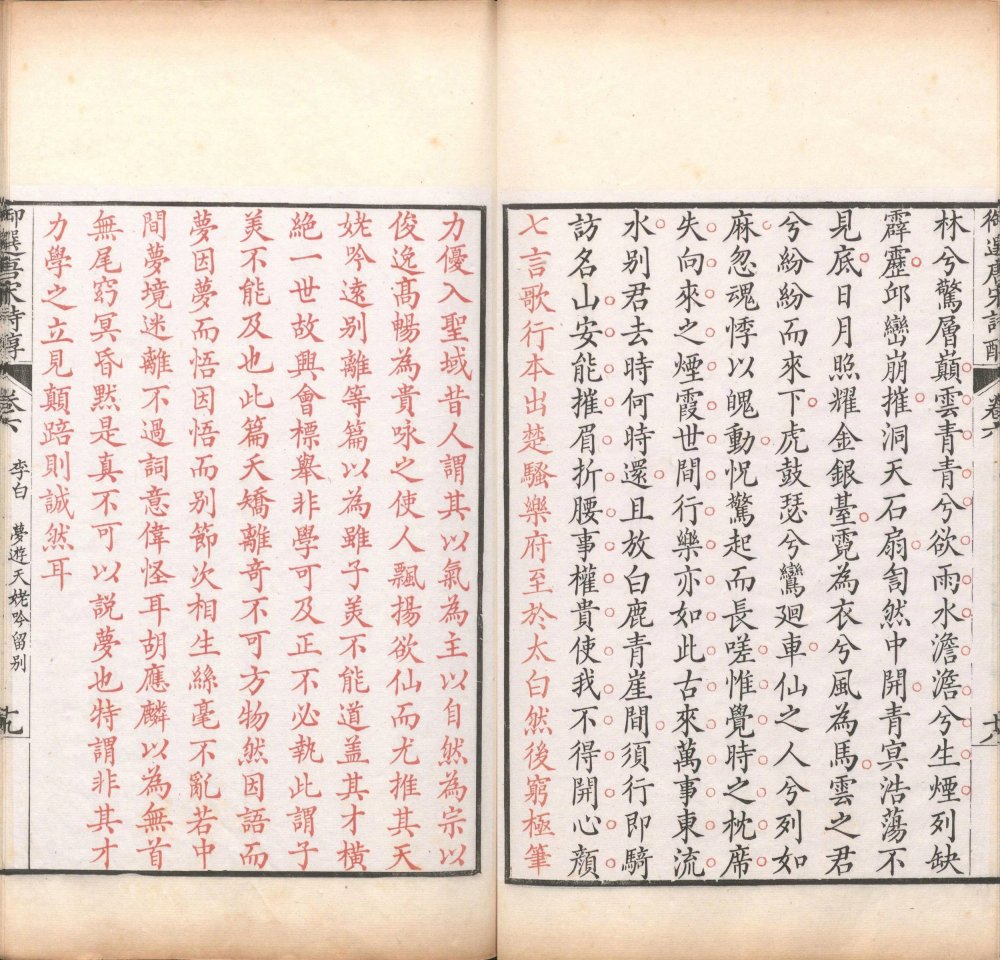 林兮驚層巔雲青青兮欲雨水澹澹兮生煙列缺
霹靂邱巒崩摧洞天石扇訇然中開青冥浩蕩不
見底日月照耀金銀臺霓為衣兮風為馬雲之君
兮紛紛而來下虎鼓瑟兮鸞廻車仙之人兮列如
麻忽魂悸以魄動怳驚起而長嗟惟覺時之枕席
失向來之煙霞世間行樂亦如此古來萬事東流
水別君去時何時還且放白鹿青崖間須行即騎
訪名山安能摧眉折腰事權貴使我不得開心顏
七言歌行本出楚騷樂府至於太白然後窮極筆
力優入聖域昔人謂其以氣為主以自然為宗以
俊逸高暢為貴咏之使人飄揚欲仙而尤推其天
姥吟遠別離等篇以為雖子美不能道盖其才橫
絕一世故興會標舉非學可及正不必執此謂子
美不能及也此篇夭矯離奇不可方物然因語而
夢因夢而悟因悟而別節次相生絲毫不亂若中
間夢境迷離不過詞意偉怪耳胡應麟以為無首
無尾窈冥昏默是真不可以説夢也特謂非其才
力學之立見顛踣則誠然耳
卷六
李白 夢遊天姥吟留別